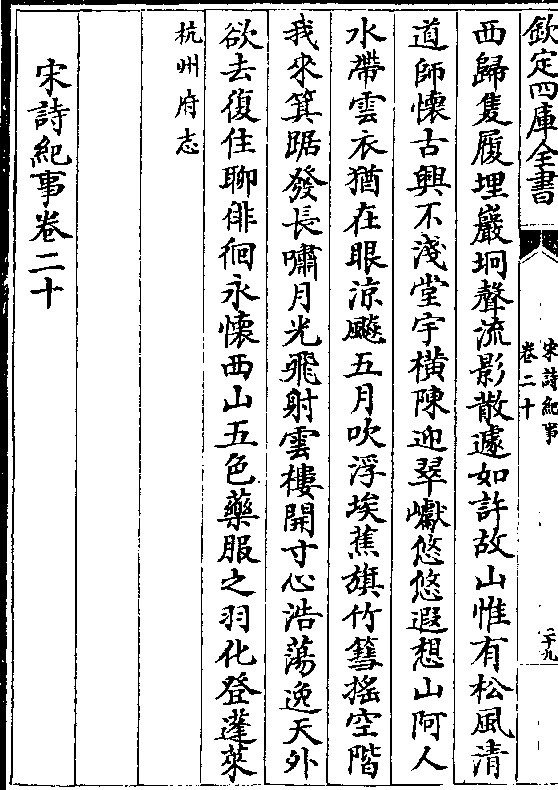 欽定四庫全書
宋詩紀事
卷二十
二十九
西歸隻履埋巖坰聲流影散遽如許故山惟有松風清
道師懷古興不淺堂宇橫陳迎翠巘悠悠遐想山阿人
水帶雲衣猶在眼涼飈五月吹浮埃蕉旗竹篲搖空階
我來箕踞發長嘯月光飛射雲樓開寸心浩蕩逸天外
欲去復住聊俳徊永懷西山五色藥服之羽化登蓬萊
杭州府志
宋詩紀事卷二十